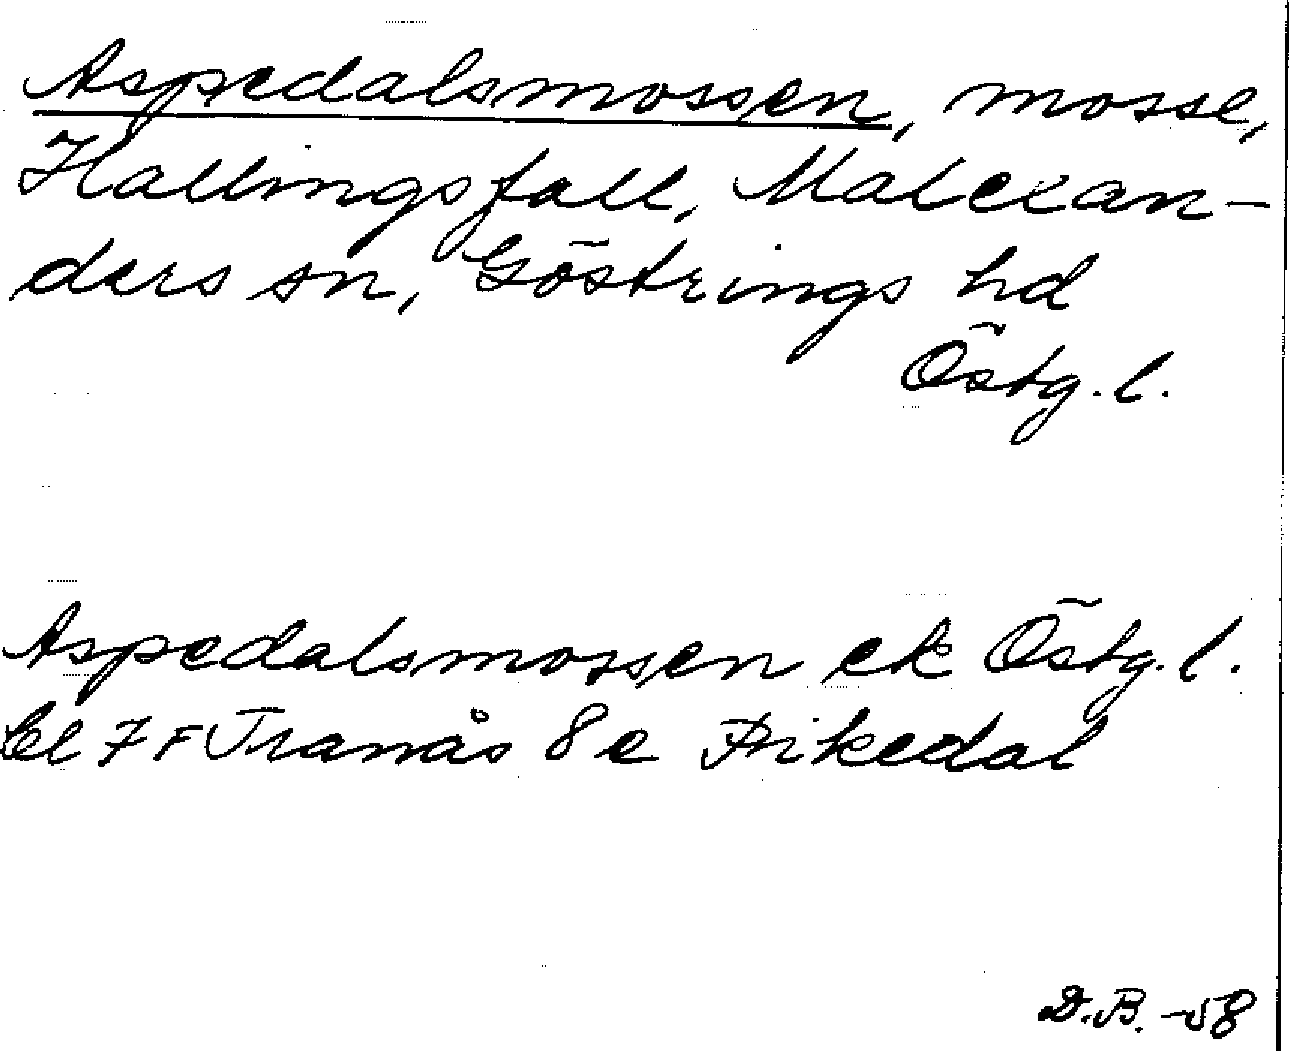 Aspedalsmossen, mosse,
Hallingsfall, Malexan-
ders sn, Göstrings hd
Östg. l.
Aspedalsmossen ek Östg. l.
bl 7 F Tranås 8 e
D.B. -58